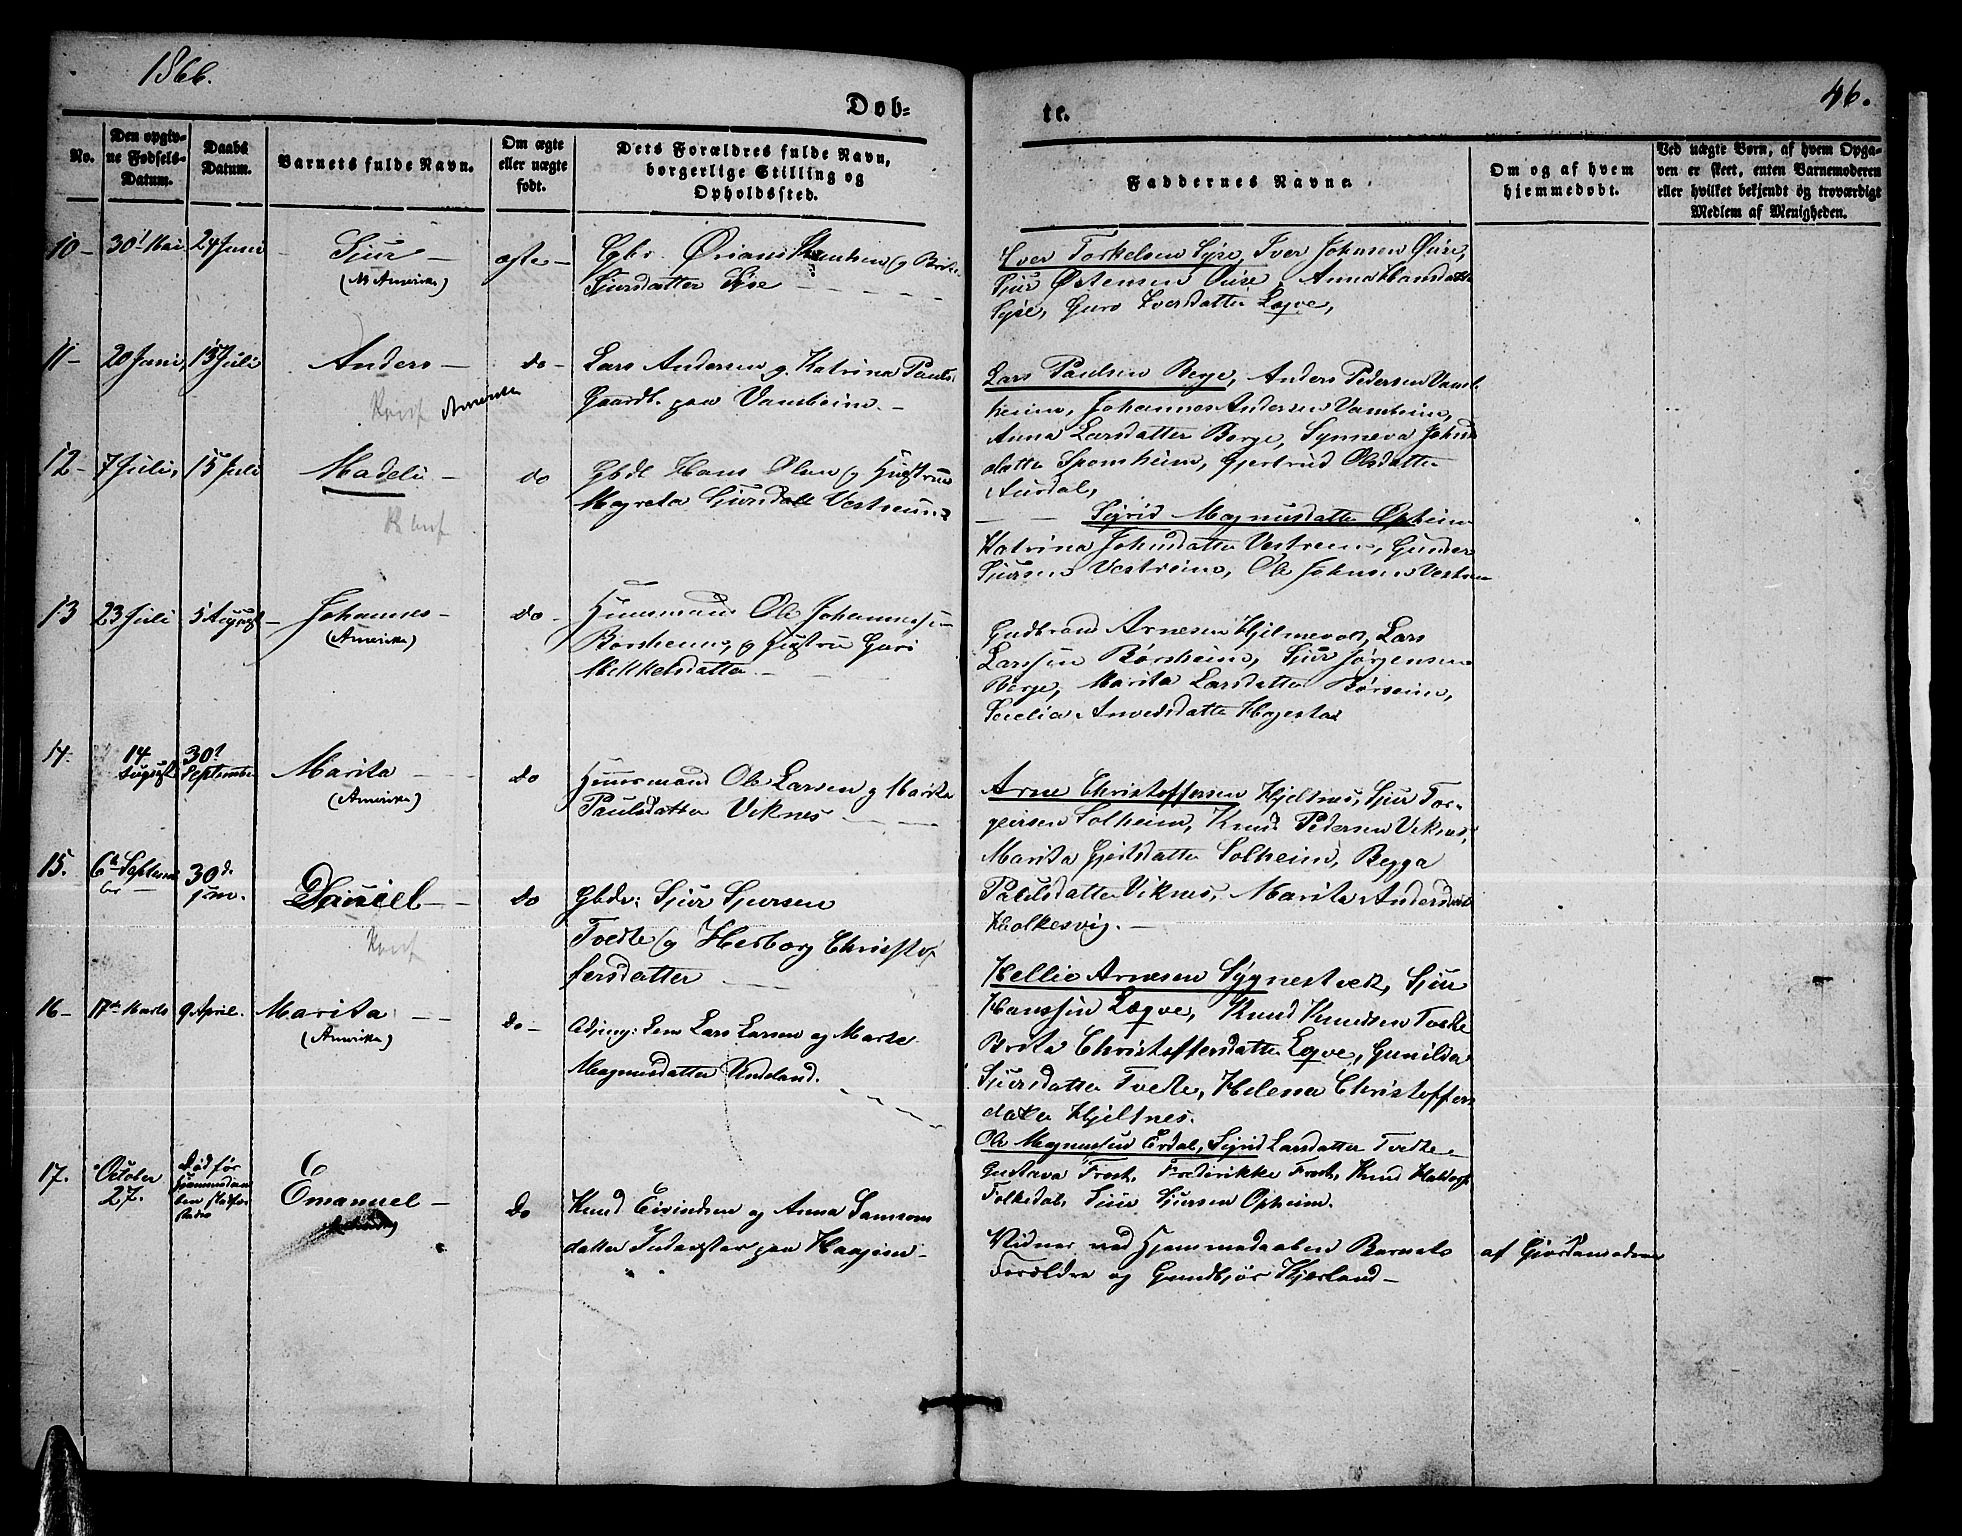 1866.
46.
Døb-
te.
No.
Den opgiv-
ne Fødsels-
Datum.
Daabs
Datum.
Barnets fulde Navn.
Om ægte
eller uægte
født.
Dets Forældres fulde Navn,
borgerlige Stilling og
Opholdssted.
Faddernes Navne.
Om og af hvem
hjemmedøbt.
Ved uægte Børn, af hvem Opga-
ven er skeet, enten Barnemoderen
eller hvilket bekjendt og troværdigt
Medlem af Menigheden.
10-
30te Mai
24 Juni
Sjur
(N. Amerika)
ægte -
Gbr. Knutsen og Brita
Sjursdatter Syse
Iver Torkelsen Syse, Iver Johnsen Quse,
Sjur Østensen Quse, Anna Hansdatter
Syse, Guro Iversdatter Legve,
11-
20 Juni,
15 Juli
Anders -
Konf Amerika
do -
Lars Andersen og Katrina Pauls
Gaardb. paa Vambeim. -
Lars Paulsen Berge, Anders Pedersen Vamb
heim, Johannes Andersen Vambeim,
Anna Larsdatter Berge, Synneva Johns
datter Sponheim, Gjertrud Olsdatter
Ausdal,
12-
7 Juli,
15 Juli
Madeli -
Konf
do
Gbdr Hans Olsen og Hustrue
Magreta Sjursdatt Vestreim
Sigrid Magnusdatter Opheim
Katrina Johnsdatter Vestreim, Gunder
Sjursen Vestreim, Ole Johnsen Vestreim
13
23 Juli
5 August -
Johannes -
(Amerika)
do -
Huusmand Ole Johannesen
Borsheim, og Hustru Guri
Mikkelsdatter -
Gudbrand Arnesen Hjelmevol, Lars
Larssen Børsheim, Sjur Jørgensen
Berge, Marita Larsdatter Børseim,
Anvedsdatter Hogestad
14.
14
August
30te
September
Marita
(Amerika)
do
Huusmand Ole Larsen og Marita
Paulsdatter Viknes
Arne Christoffersen Hjeltnes, Sjur Tor-
geirsen Solheim, Knud Pedersen Viknes,
Marita Gjertsdatter Solheim, Begga
Paulsdatter Viknes, Marita Andersdatt
Holkesvig. -
15.
6te Septem
ber
30te
Daniel -
Konf
do
Gbdr: Sjur Sjursen
Tvedte og Herborg Christof
fersdatter
Hellie Arnesen Sygnestvek, Sjur
Hanssen Legve, Knud Knudsen Tvedte
Brita Christoffersdatter Legve, Gunilda
Sjursdatter Tvedte, Helena Christoffers
datter Hjeltnes.
16-
17de Marts
9 April.
Marita
(Amerika)
do -
Lars Larsen og Marta
Magnusdatter Undeland.
Ole Magnussen Erdal, Sigrid Larsdatter Tvedte
Gustava Frost, Frederikke Frost, Knud Haldorsen
Folkedal, Sjur Sjursen Opheim.
17.
October
27.
Død før
Emanuel -
do
Knud Eivindsen og Anna Samsons
datter Inderster paa Haaheim -
Vidner ved Hjemmedaaben Barnets
Forældre og Gundbjør Kjerland -
af Gjordemoderen